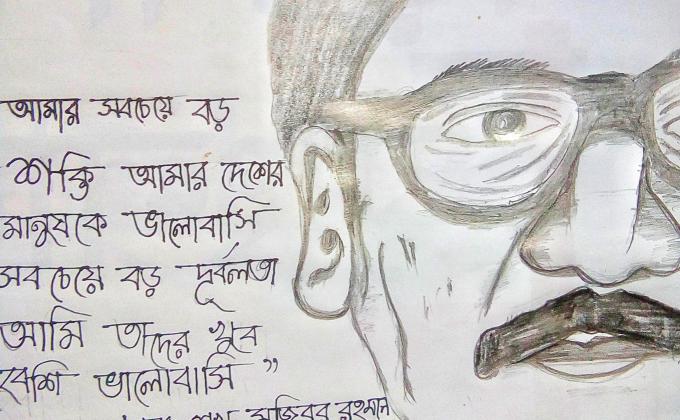 আমার সবচেয়ে বড়
শক্তি আমার দেশের
মানুষকে ভালোবাসি
সবচেয়ে বড় দূর্বলতা
আমি তাদের খুব
বেশি ভালোবাসি”
শেখ মুজিবুর রহমান